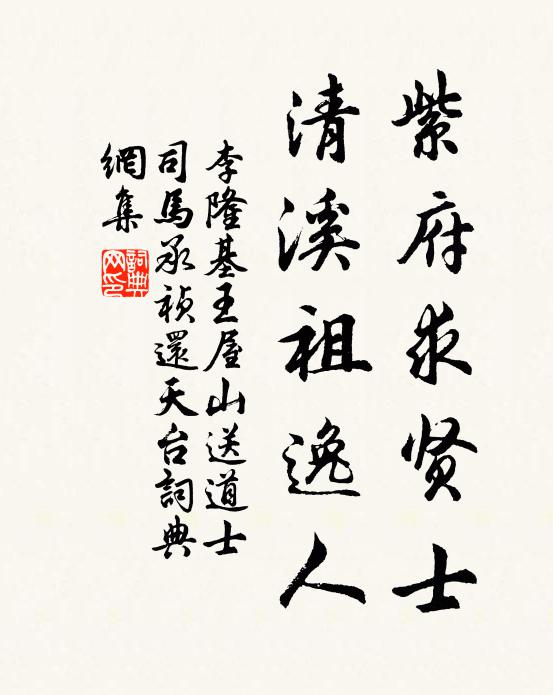 紫府求贤士
清溪祖逸人
李隆基王屋山送道士
司馬承禎還天台詞典
網集
詞典
网印